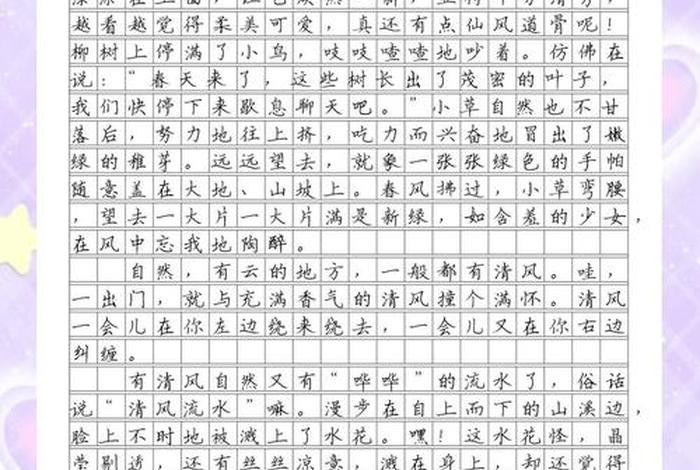 越看越觉得柔美可爱，真还有点仙风道骨呢！
柳树上停满了小鸟，吱吱喳喳地吵着。仿佛在
说：“春天来了，这些树长出了茂密的叶子，
我们快停下来歇息聊天吧。”小草自然也不甘
落后，努力地往上挤，吃力而兴奋地冒出了嫩
绿的稚芽。远远望去，就象一张张绿色的手帕
随意盖在大地、山坡上。春风拂过，小草弯腰
，望去一大片一大片满是新绿，如含羞的少女，
在风中忘我地陶醉。
自然，有云的地方，一般都有清风。哇，
一出门，就与充满香气的清风撞个满怀。清风
一会儿在你左边绕来绕去，一会儿又在你右边
纠缠。
有清风自然又有“哗哗”的流水了，俗话
说“清风流水”嘛。漫步在自上而下的山溪边，
脸上不时地被溅上了水花。嘿！这水花怪，晶
莹剔透，还有丝丝凉意，溅在身上，却还觉得